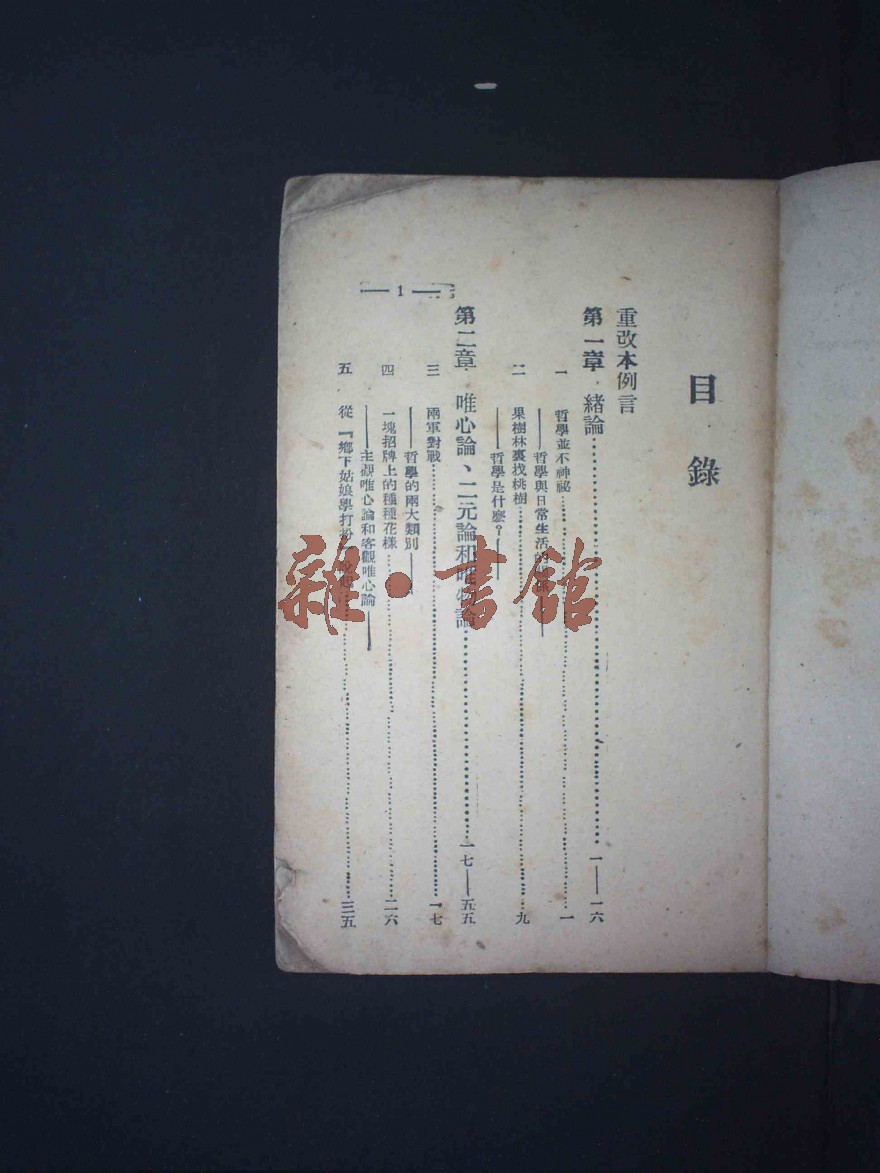 目錄
重改本例言
第一章 緒論……一——一六
一 哲學並不神祕……一
——哲學與日常生活的關係——
二 果樹林裏找桃樹……九
——哲學是什麽？——
第二章 唯心論、二元論和唯物論……一七——五五
三 兩軍對戰……一七
——哲學的兩大類別——
四 一塊招牌上的種種花樣……二六
——主觀唯心論和客觀唯心論——
五 從『鄉下姑娘學打扮……三五
— 1 —
雜·書館